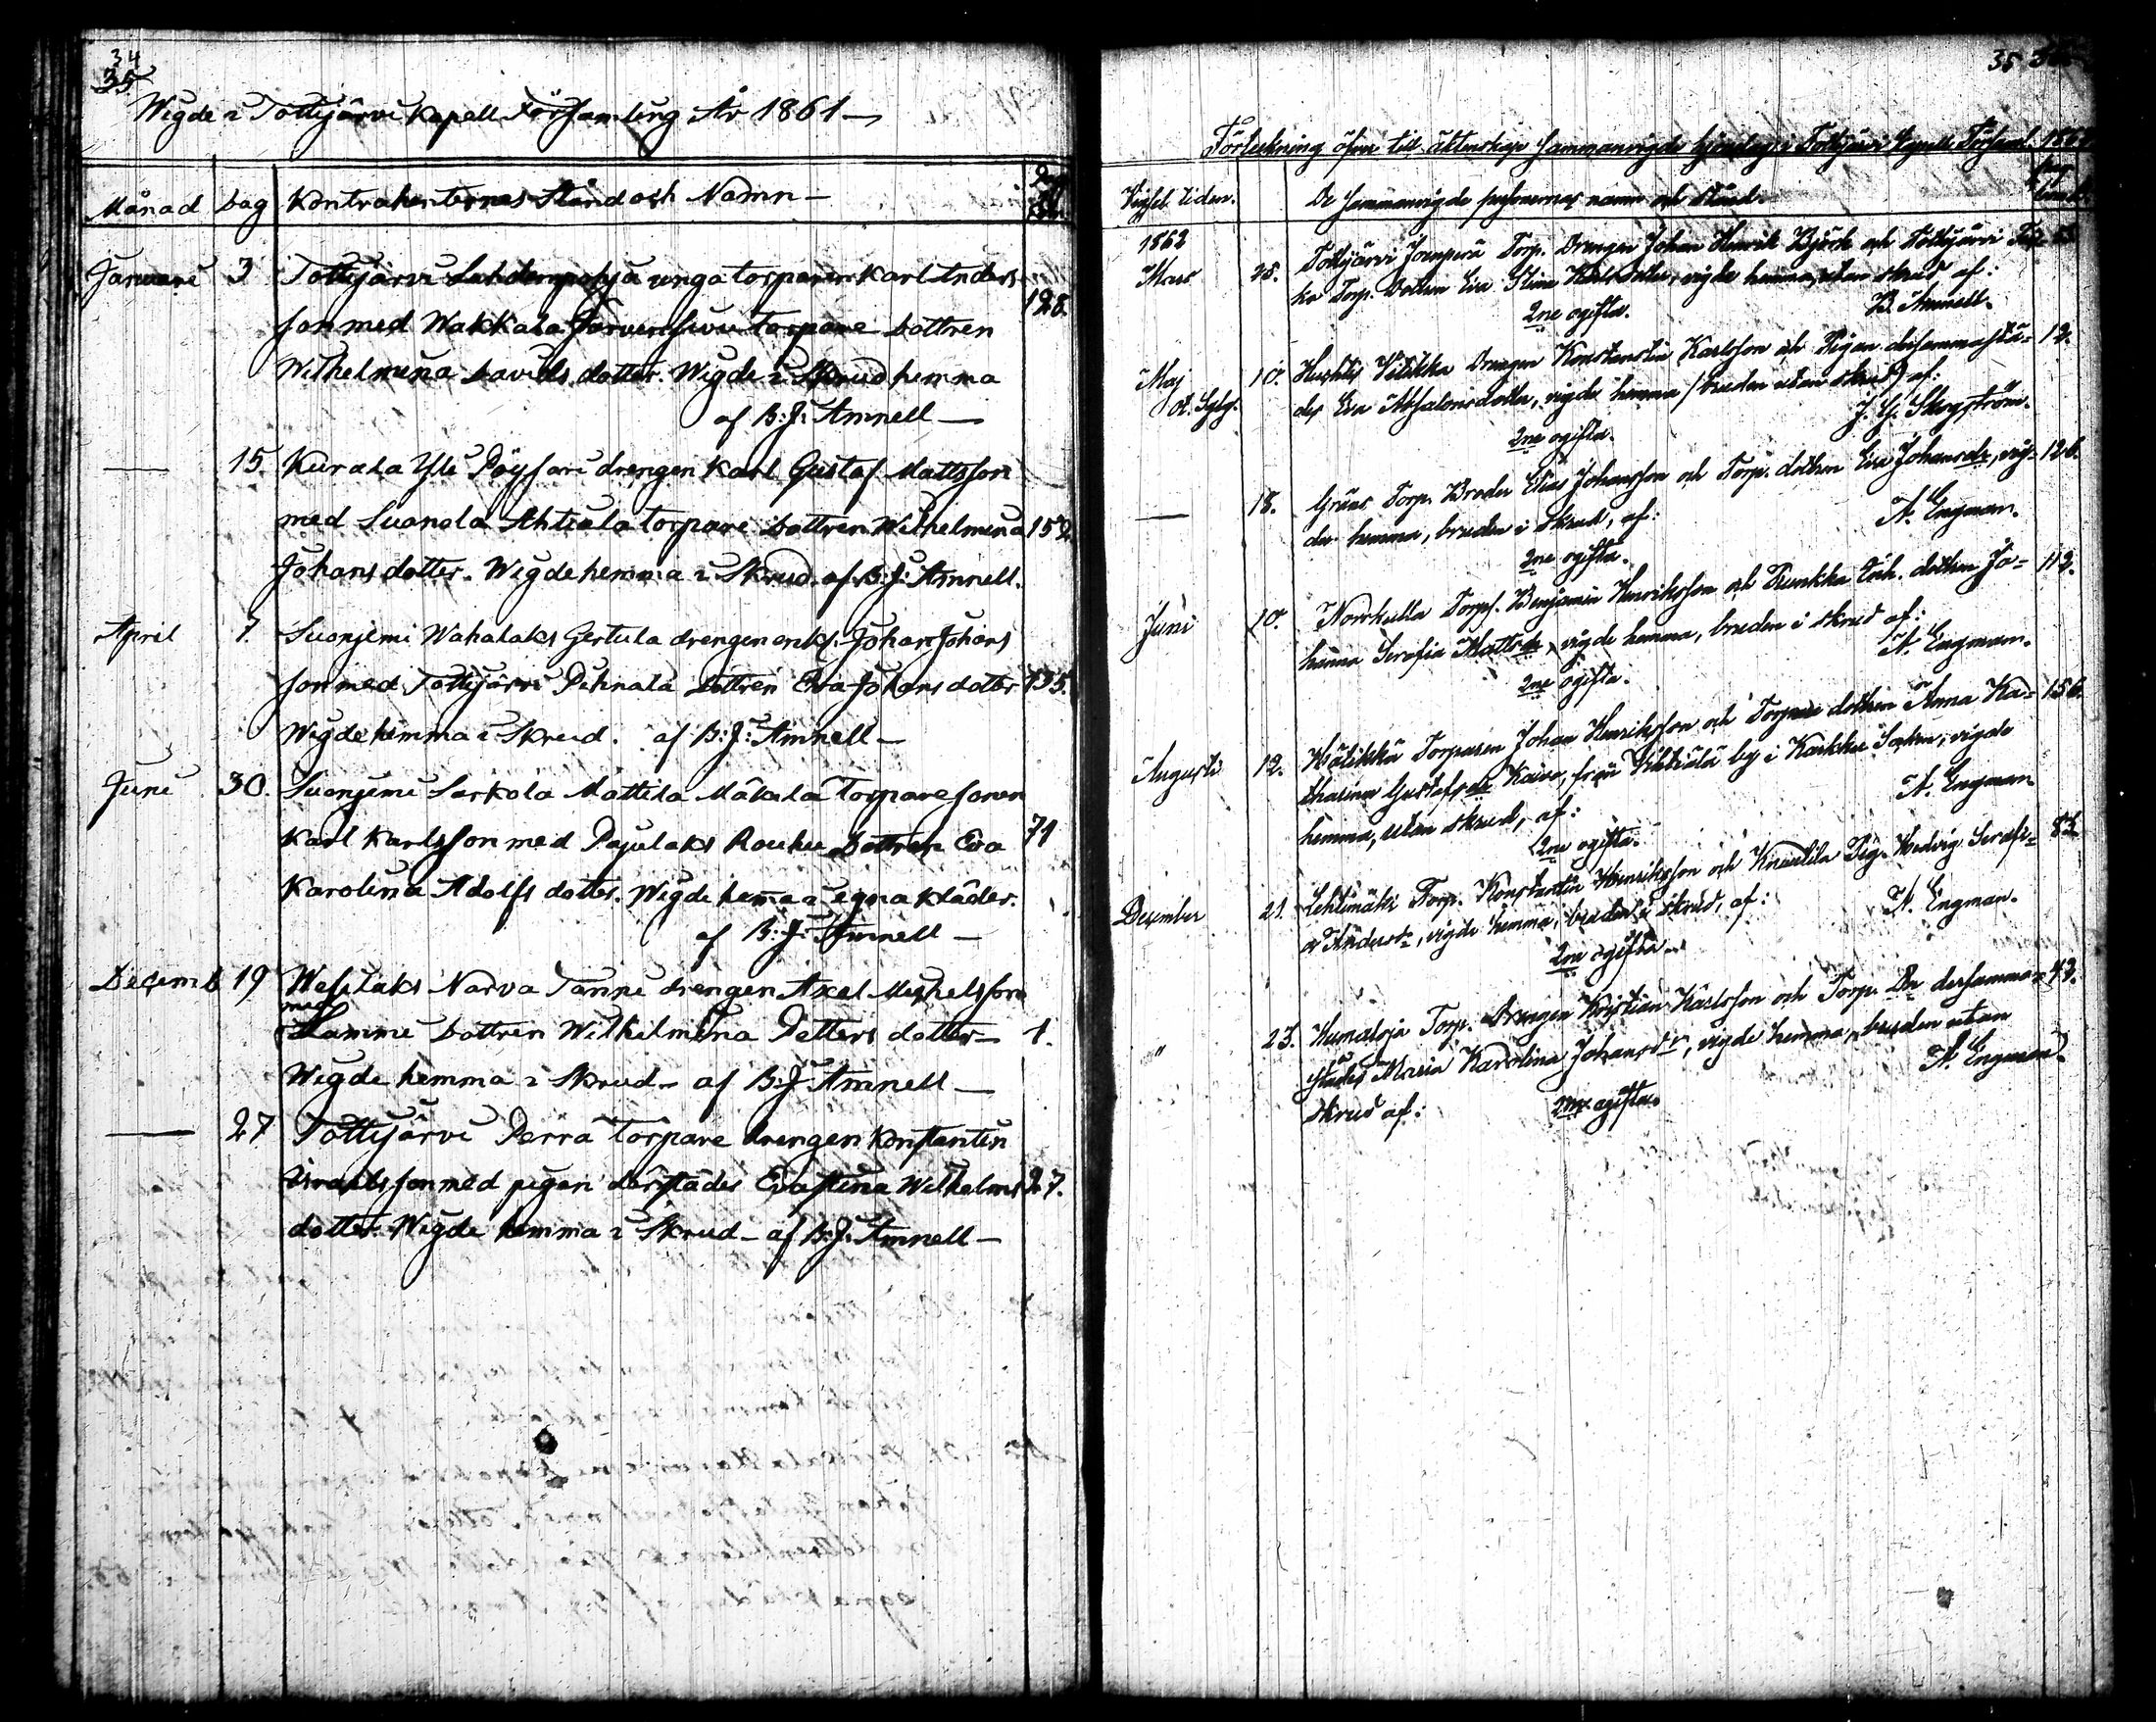 34
35.
Wigde i Tottijärvi Kapell Församling År 1861 —
Månad Dag Kontrahenternes Stånd och Namn —
Januari 3 Tottijärvi Lahdenpohja unga torparen Karl Anders
son med Wakkala Järvensivu torpare Dottren 128.
Wilhelmina Davids dotter. Wigde i Skrud hemma
af B: J: Amnell —
— 15. Kurala Yli Pöysari drengen Karl Gustaf Mattsson
med Suonola Ahtiala torpare Dottren Wilhelmina 152
Johans dotter. Wigde hemma i Skrud. af B: J: Amnell.
April 7. Suonjemi Wahalaks Gertula drengen enkl. Johan Johans
son med Tottijärvi Pihnala Dottren Eva Johans dotter 135.
Wigde hemma i Skrud. af B: J: Amnell —
Juni 30. Suonjemi Sarkola Mattila Mäkelä Torpare sonen
Karl Karlsson med Pajulaks Rouhu Dottren Eva 71
Karolina Adolfs dotter. Wigde hemma i egna kläder.
af B: J: Amnell —
Decemb 19 Wesilaks Narva Tanni drengen Axel Michelsson
med
Lammi Dottren Wilhelmina Petters dotter — 1.
Wigde hemma i Skrud — af B: J: Amnell —
— 27 Tottijärvi Perrä torpare drengen Konstantin
Israelsson med pigan därstädes Eva Stina Wilhelms 27.
dotter. Wigde hemma i Skrud — af B: J: Amnell —
35
Förteckning öfver till äktenskap sammanvigde hjonelag i Tottijärvi Kapell Församl. 1862
Vigsel tiden. De sammanvigde personernas namn och stånd.
1862
Mars 25. Tottijärvi Joenperä Torp. Drengen Johan Henrik Björk och Tottijärvi
ko Torp. Dottren Eva Stina Karlsdotter, vigde hemma, utan skrud af:
2ne ogifta. B. Amnell.
Maj 10. Huhtis Välikka Drengen Konstantin Karlsson och Pigan dersammastä= 12.
des Eva Absalonsdotter, vigde hemma (bruden utan skrud) af:
2ne ogifta. J. G. Skogström.
— 18. Grüns Torp. Broder Elias Johansson och Torp. dottren Eva Johansdr, vig= 126.
de hemma, bruden i skrud, af: A. Engman.
2ne ogifta.
Juni 10. Norrkulla Torps. Benjamin Henriksson och Punkka Enk. dottren Jo= 112.
hanna Serafia Mattsdr, vigde hemma, bruden i skrud af:
2ne ogifta. A. Engman.
Augusti 12. Wälikkä Torparen Johan Henriksson och Torpare dottren Anna Ka= 156.
tharina Gustafsdr Kaivo, från Ahtiala by i Karkku Socken, vigde
hemma, utan skrud, af: A. Engman.
2ne ogifta.
December 21. Lehtimäki Torp. Konstantin Henriksson och Knuutila Pig. Hedvig Serafi= 83
a Andersdr, vigde hemma, bruden i skrud, af: A. Engman.
2ne ogifta.
" 23. Humaloja Torp. Drengen Kristian Karlsson och Torp. Dr dersamma= 42.
städes Maria Karolina Johansdr, vigde hemma, bruden utan
skrud af: 2ne ogifta. A. Engman.